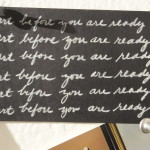 art before you are ready
art before you are ready
art before you are ready
art before you are ready
art before you are ready
art before you are ready